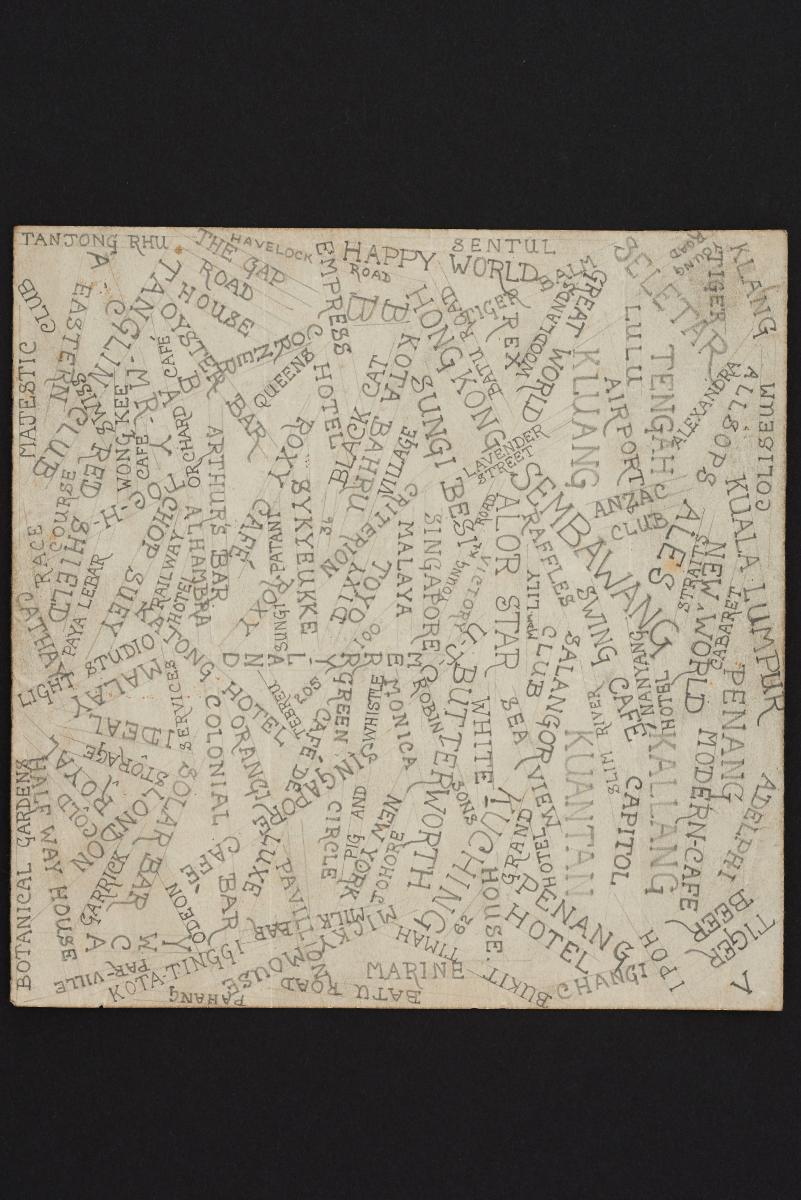 TANJONG RHU
HAVELOCK
ROAD
THE GAP
ROAD
HAPPY WORLD
SENTUL
SELETAR
YOUNG
ROAD
TIGER
KLANG
MAJESTIC CLUB
EASTERN CLUB
TANGLIN
OYSTER BAR
HOUSE
CORNER
QUEENS
EMPRESS HOTEL
HONG KONG
BATU ROAD
TIGER
REX
WOODLANDS
GREAT WORLD
LULU
KLUANG
TENGAH
AIRPORT
ALEXANDRA
ALLSOPS
COLISEUM
SWISS
RED SHIELD
WONG KEE
CAFÉ
CAFÉ
ORCHARD
ARTHUR'S BAR
ALHAMBRA
ROXY CAFÉ
SYKYEUKKE
BLACK CAT
KOTA BAHRU
VILLAGE
SUNGI BESI
LAVENDER
STREET
SEMBAWANG
ANZAC
CLUB
ALES
KUALA LUMPUR
RACE
COURSE
PAYA LEBAR
CHOP SUEY
RAILWAY
HOTEL
SUNGI PATANI
ROXY
36
CRITERION
DIXI
TOYO
100
MALAYA
SINGAPORE
YOUNG
ROAD
VICTORY
ALOR STAR
RAFFLES
SWING CAFÉ
STRAITS
NEW-WORLD
CABARET
PENANG
LIGHT
STUDIO
MALAY
IDEAL
SERVICES
HOTEL
TEBREU
205
GREEN
CIRCLE
WHISTLE
MONICA
ROBIN
SONS
BUTTERWORTH
WHITE
HOUSE.
SEA VIEW
HOTEL
CLUB
SALANGOR
KUANTAN
SLIM RIVER
NANYANG
HOTEL
KALLANG
CAPITOL
MODERN-CAFE
ADELPHI
BOTANICAL GARDENS
HALF WAY HOUSE
COLD
STORAGE
ROYAL
LONDON
GARRICK
SOLAR BAR
COLONIAL CAFE BAR
ORANGE
CAFÉ DE LUXE
SINGAPORE
PIG AND
NEW YORK
JOHORE
GRAND
PENANG
HOTEL
TIGER
BEER
IPOH
CHANGI
Y
M
C
A
ODEON
CAFÉ
PAVILLION
MICKY MOUSE
MILK
BAR
62
BUKIT TIMAH
MARINE
BATU ROAD
PAR-VILLE
KOTA-TINGGI
PAHANG